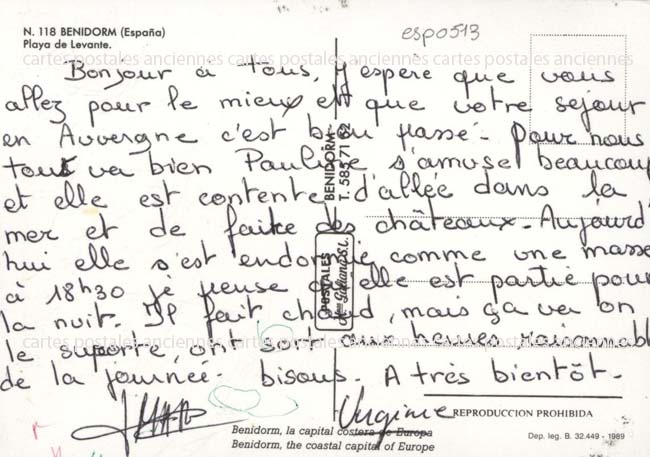 N. 118 BENIDORM (España)
Playa de Levante.
esp0513
cartes postales anciennes cartes postales anciennes cartes postales anciennes
Bonjour à tous, J'espère que vous
allez pour le mieux et que votre sejour
en Auvergne c'est bien passé. Pour nous
tout va bien Pauline s'amuse beaucoup
et elle est contente d'allée dans la
mer et de faire des châteaux. Aujourd'
hui elle s'est endormie comme une masse
à 18h30 je pense qu'elle est partie pour
la nuit. Il fait chaud, mais ça va on
le suporte, ont sort aux heures raisonnabl
de la journée. bisous. A très bientôt.
Virginie
POSTALES
BENIDORM
T. 585 71 62
REPRODUCCION PROHIBIDA
Benidorm, la capital costera de Europa
Benidorm, the coastal capital of Europe
Dep. leg. B. 32.449 - 1989